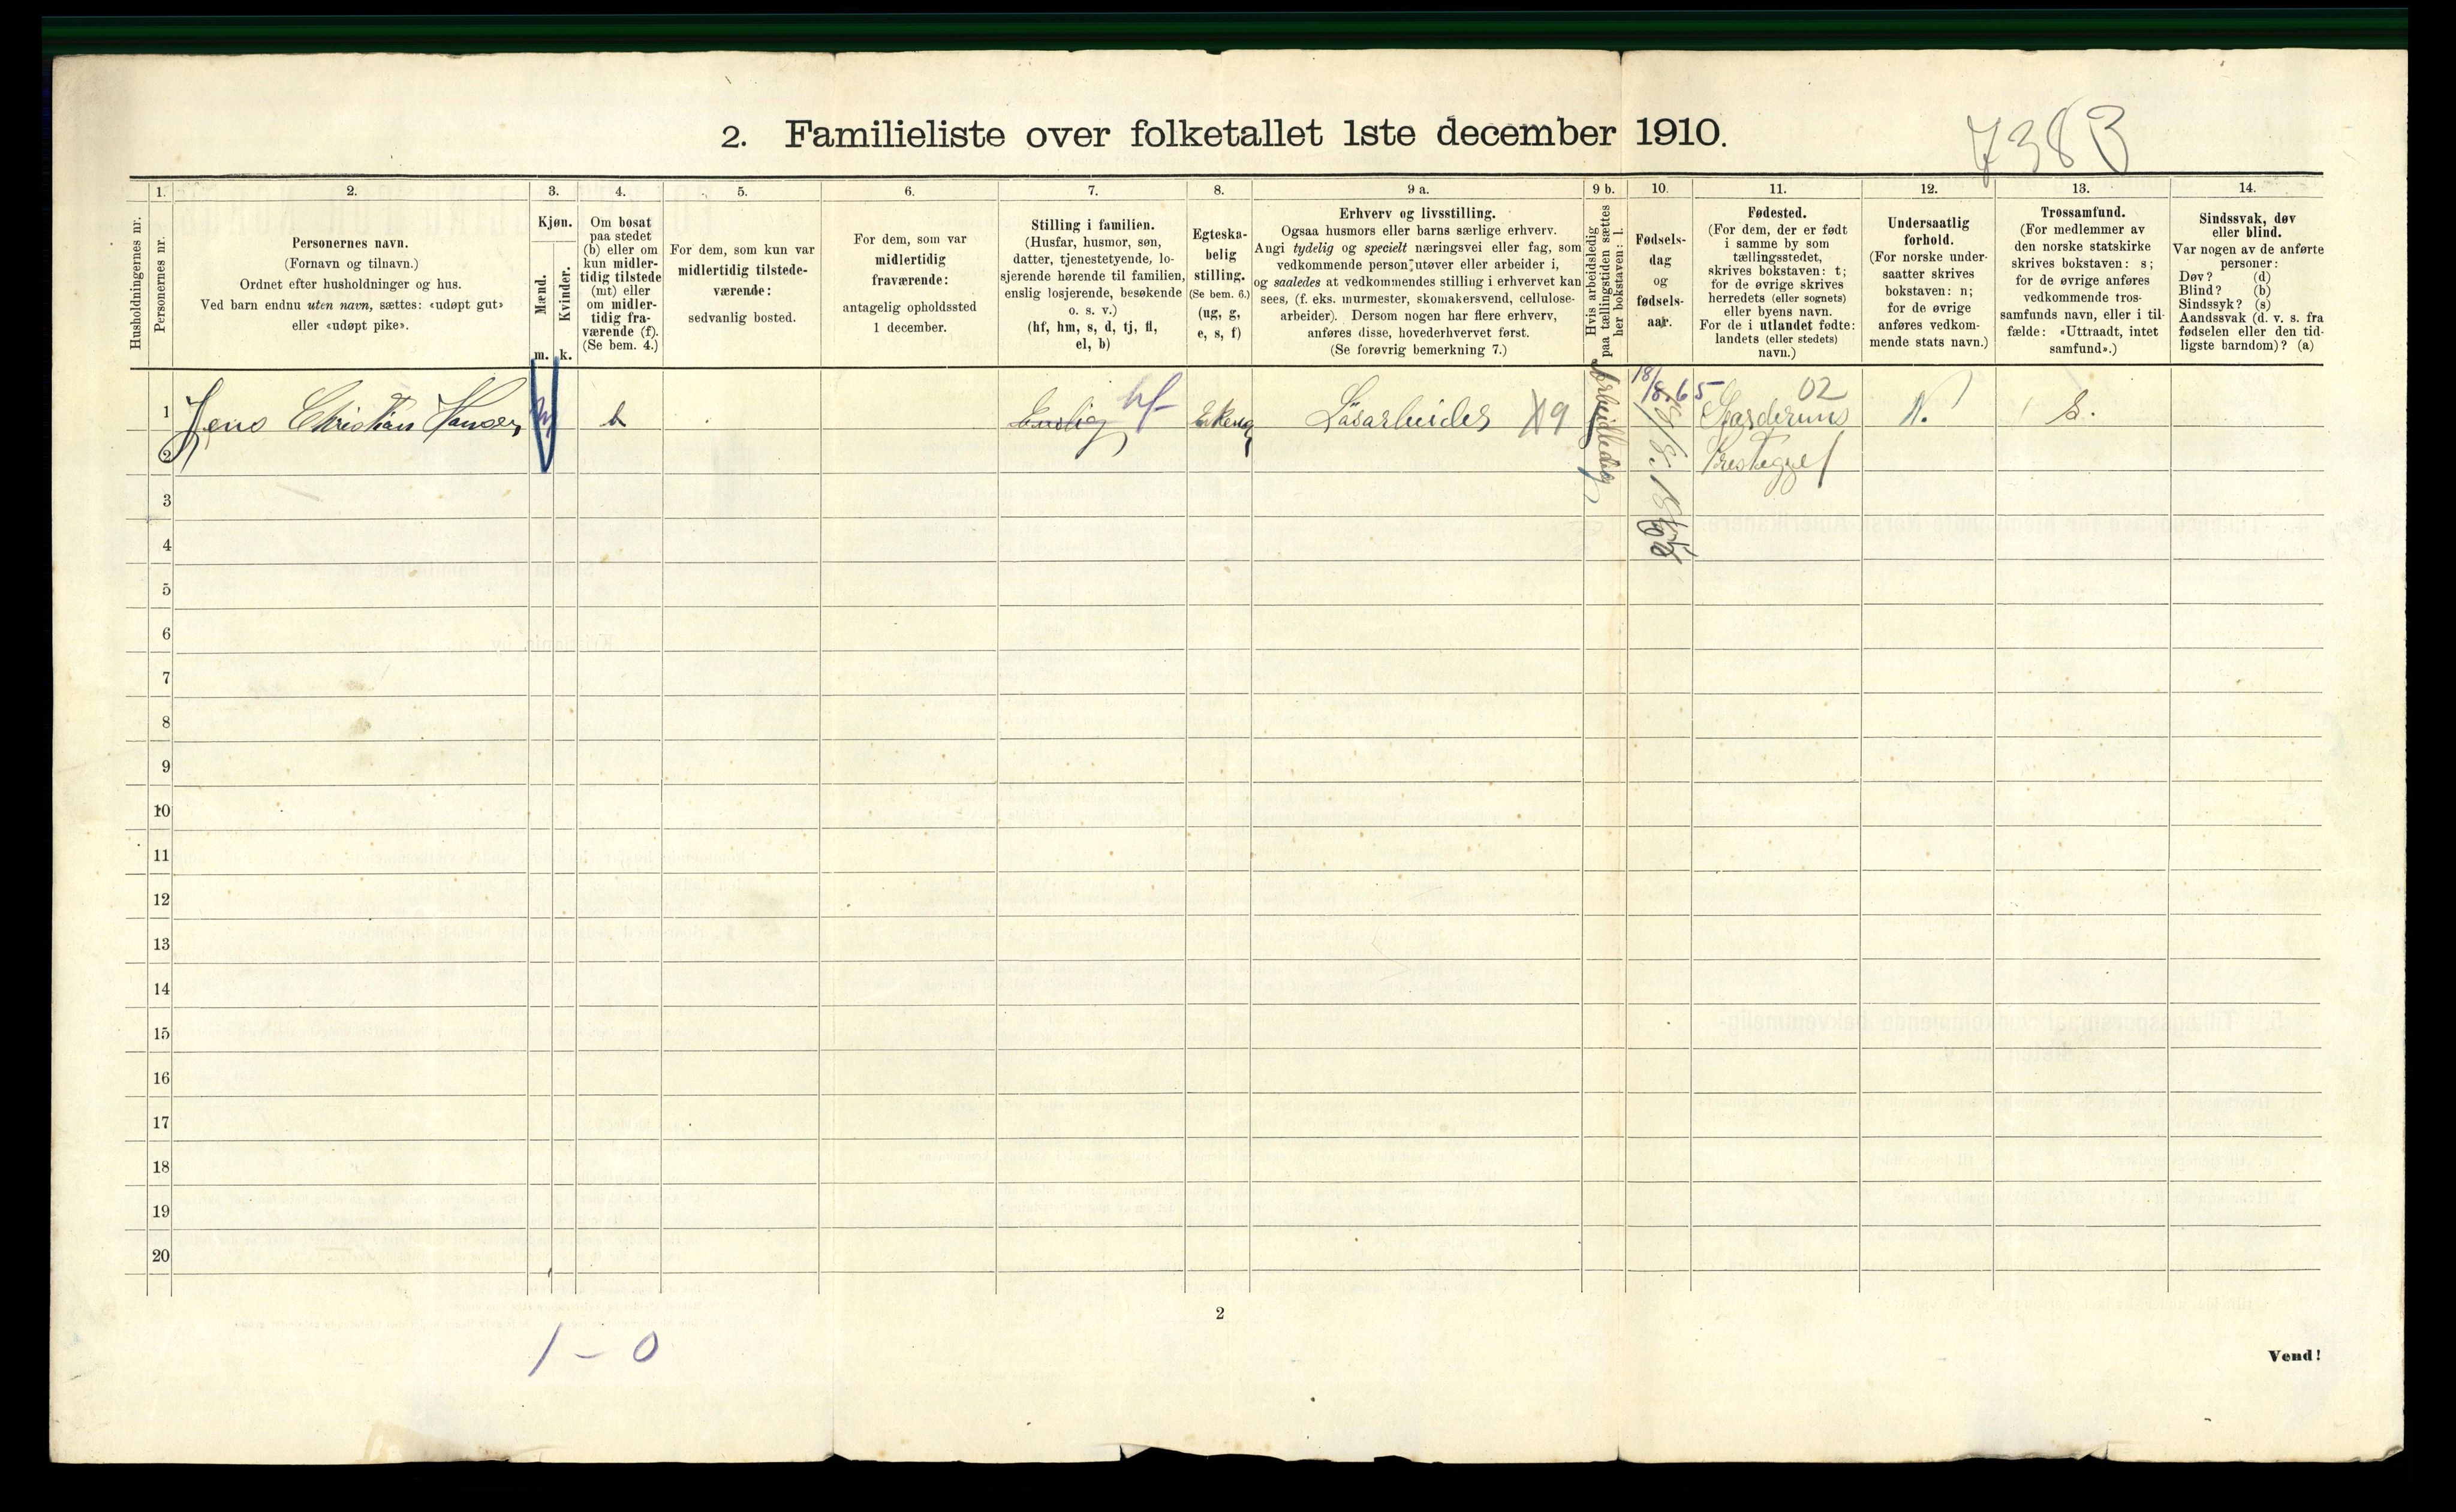 2. Familieliste over folketallet 1ste december 1910.
7383
1. 2. 3. 4. 5. 6. 7. 8. 9 a. 9 b. 10. 11. 12. 13. 14.
Husholdningernes nr.
Personernes nr.
Personernes navn.
(Fornavn og tilnavn.)
Ordnet efter husholdninger og hus.
Ved barn endnu uten navn, sættes: «udøpt gut»
eller «udøpt pike».
Kjøn.
Mænd.
Kvinder.
m. k.
Om bosat
paa stedet
(b) eller om
kun midler-
tidig tilstede
(mt) eller
om midler-
tidig fra-
værende (f).
(Se bem. 4.)
For dem, som kun var
midlertidig tilstede-
værende:
sedvanlig bosted.
For dem, som var
midlertidig
fraværende:
antagelig opholdssted
1 december.
Stilling i familien.
(Husfar, husmor, søn,
datter, tjenestetyende, lo-
sjerende hørende til familien,
enslig losjerende, besøkende
o. s. v.)
(hf, hm, s, d, tj, fl,
el, b)
Egteska-
belig
stilling.
(Se bem. 6.)
(ug, g,
e, s, f)
Erhverv og livsstilling.
Ogsaa husmors eller barns særlige erhverv.
Angi tydelig og specielt næringsvei eller fag, som
vedkommende person utøver eller arbeider i,
og saaledes at vedkommendes stilling i erhvervet kan
sees, (f. eks. murmester, skomakersvend, cellulose-
arbeider). Dersom nogen har flere erhverv,
anføres disse, hovederhvervet først.
(Se forøvrig bemerkning 7.)
Hvis arbeidsledig
paa tællingstiden sættes
her bokstaven: l.
Fødsels-
dag
og
fødsels-
aar.
Fødested.
(For dem, der er født
i samme by som
tællingsstedet,
skrives bokstaven: t;
for de øvrige skrives
herredets (eller sognets)
eller byens navn.
For de i utlandet fødte:
landets (eller stedets)
navn.)
Undersaatlig
forhold.
(For norske under-
saatter skrives
bokstaven: n;
for de øvrige
anføres vedkom-
mende stats navn.)
Trossamfund.
(For medlemmer av
den norske statskirke
skrives bokstaven: s;
for de øvrige anføres
vedkommende tros-
samfunds navn, eller i til-
fælde: «Uttraadt, intet
samfund».)
Sindssvak, døv
eller blind.
Var nogen av de anførte
personer:
Døv? (d)
Blind? (b)
Sindssyk? (s)
Aandssvak (d. v. s. fra
fødselen eller den tid-
ligste barndom)? (a)
1 Jens Christian Hansen b Enslig hf Løsarbeider Arbeidledig 18/8.65 02 N. S.
2
3
4
5
6
7
8
9
10
11
12
13
14
15
16
17
18
19
20
2
1 - 0
Vend!